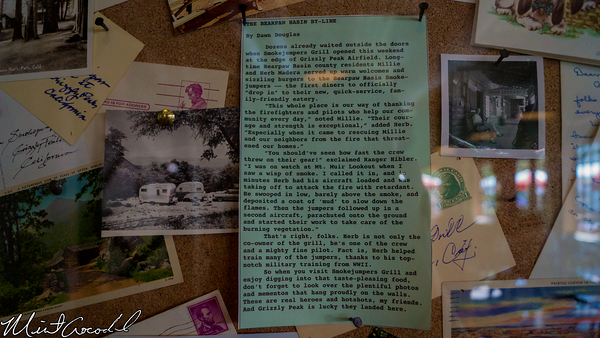 THE BEARPAW BASIN BY-LINE
By Dawn Douglas
Dozens already waited outside the doors
when Smokejumpers Grill opened this weekend
at the edge of Grizzly Peak Airfield. Long-
time Bearpaw Basin county residents Millie
and Herb Madera served up warm welcomes and
sizzling burgers to the Bearpaw Basin Smoke-
jumpers -- the first diners to officially
"drop in" to their new, quick-service, fam-
ily-friendly eatery.
"This whole place is our way of thanking
the firefighters and pilots who help our com-
munity every day," noted Millie. "Their cour-
age and strength is exceptional," added Herb.
"Especially when it came to rescuing Millie
and our neighbors from the fire that threat-
ened our homes."
"You should've seen how fast the crew
threw on their gear!" exclaimed Ranger Hibler.
"I was on watch at Mt. Muir Lookout when I
saw a wisp of smoke. I called it in, and in
minutes Herb had his aircraft loaded and was
taking off to attack the fire with retardant.
He swooped in low, barely above the smoke, and
deposited a coat of 'mud' to slow down the
flames. Then the jumpers followed up in a
second aircraft, parachuted onto the ground
and started their work to take care of the
burning vegetation."
That's right, folks. Herb is not only the
co-owner of the grill, he's one of the crew
and a mighty fine pilot. Fact is, Herb helped
train many of the jumpers, thanks to his top-
notch military training from WWII.
So when you visit Smokejumpers Grill and
enjoy digging into that taste-pleasing food,
don't forget to look over the plentiful photos
and mementos that hang proudly on the walls.
These are real heroes and hotshots, my friends.
And Grizzly Peak is lucky they landed here.
California
Grill
Mint Crocodile